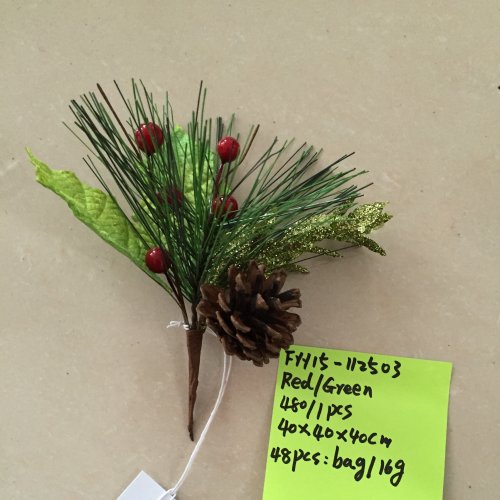 FYH15-112503
Red/Green
480/1pcs
40x40x40cm
48pcs:bag/16g